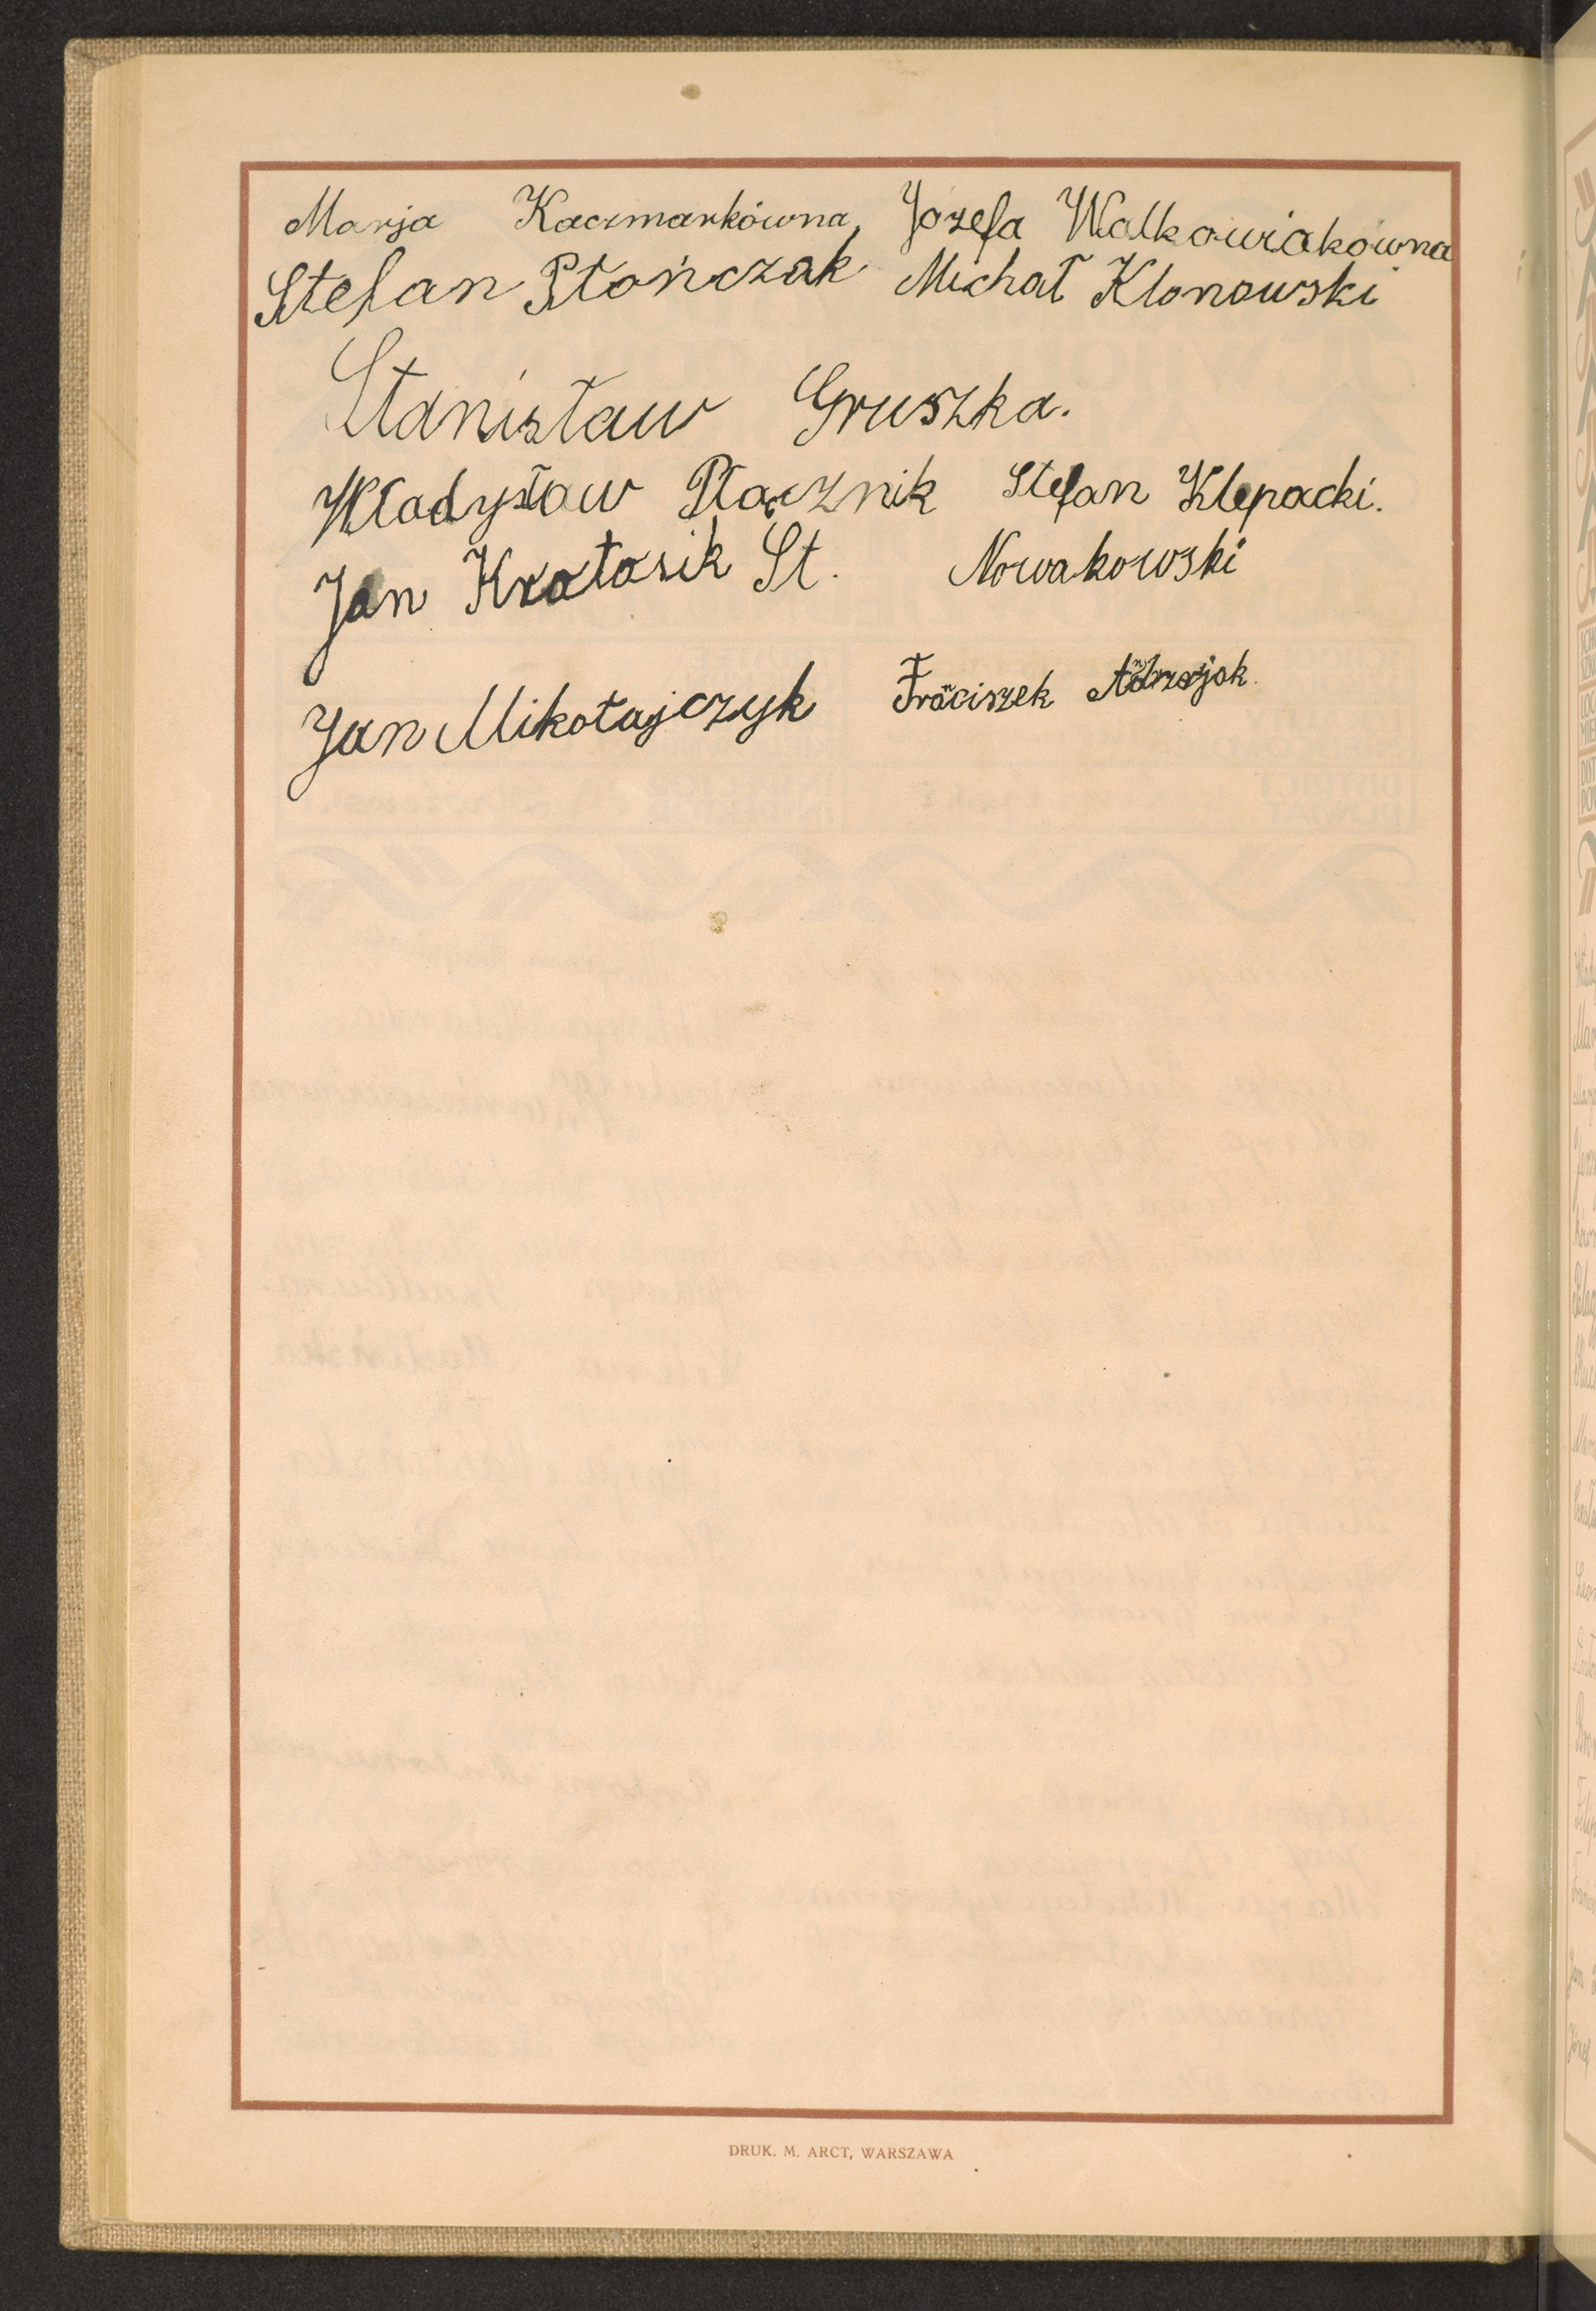 Marja Kaczmarkówna, Józefa Walkowiakówna
Stefan Płończak Michał Klonowski
Stanisław Gruszka.
Władysław Płącznik Stefan Klepacki.
Jan Kratosik St. Nowakowski
Jan Mikołajczyk Franciszek
DRUK. M. ARCT, WARSZAWA